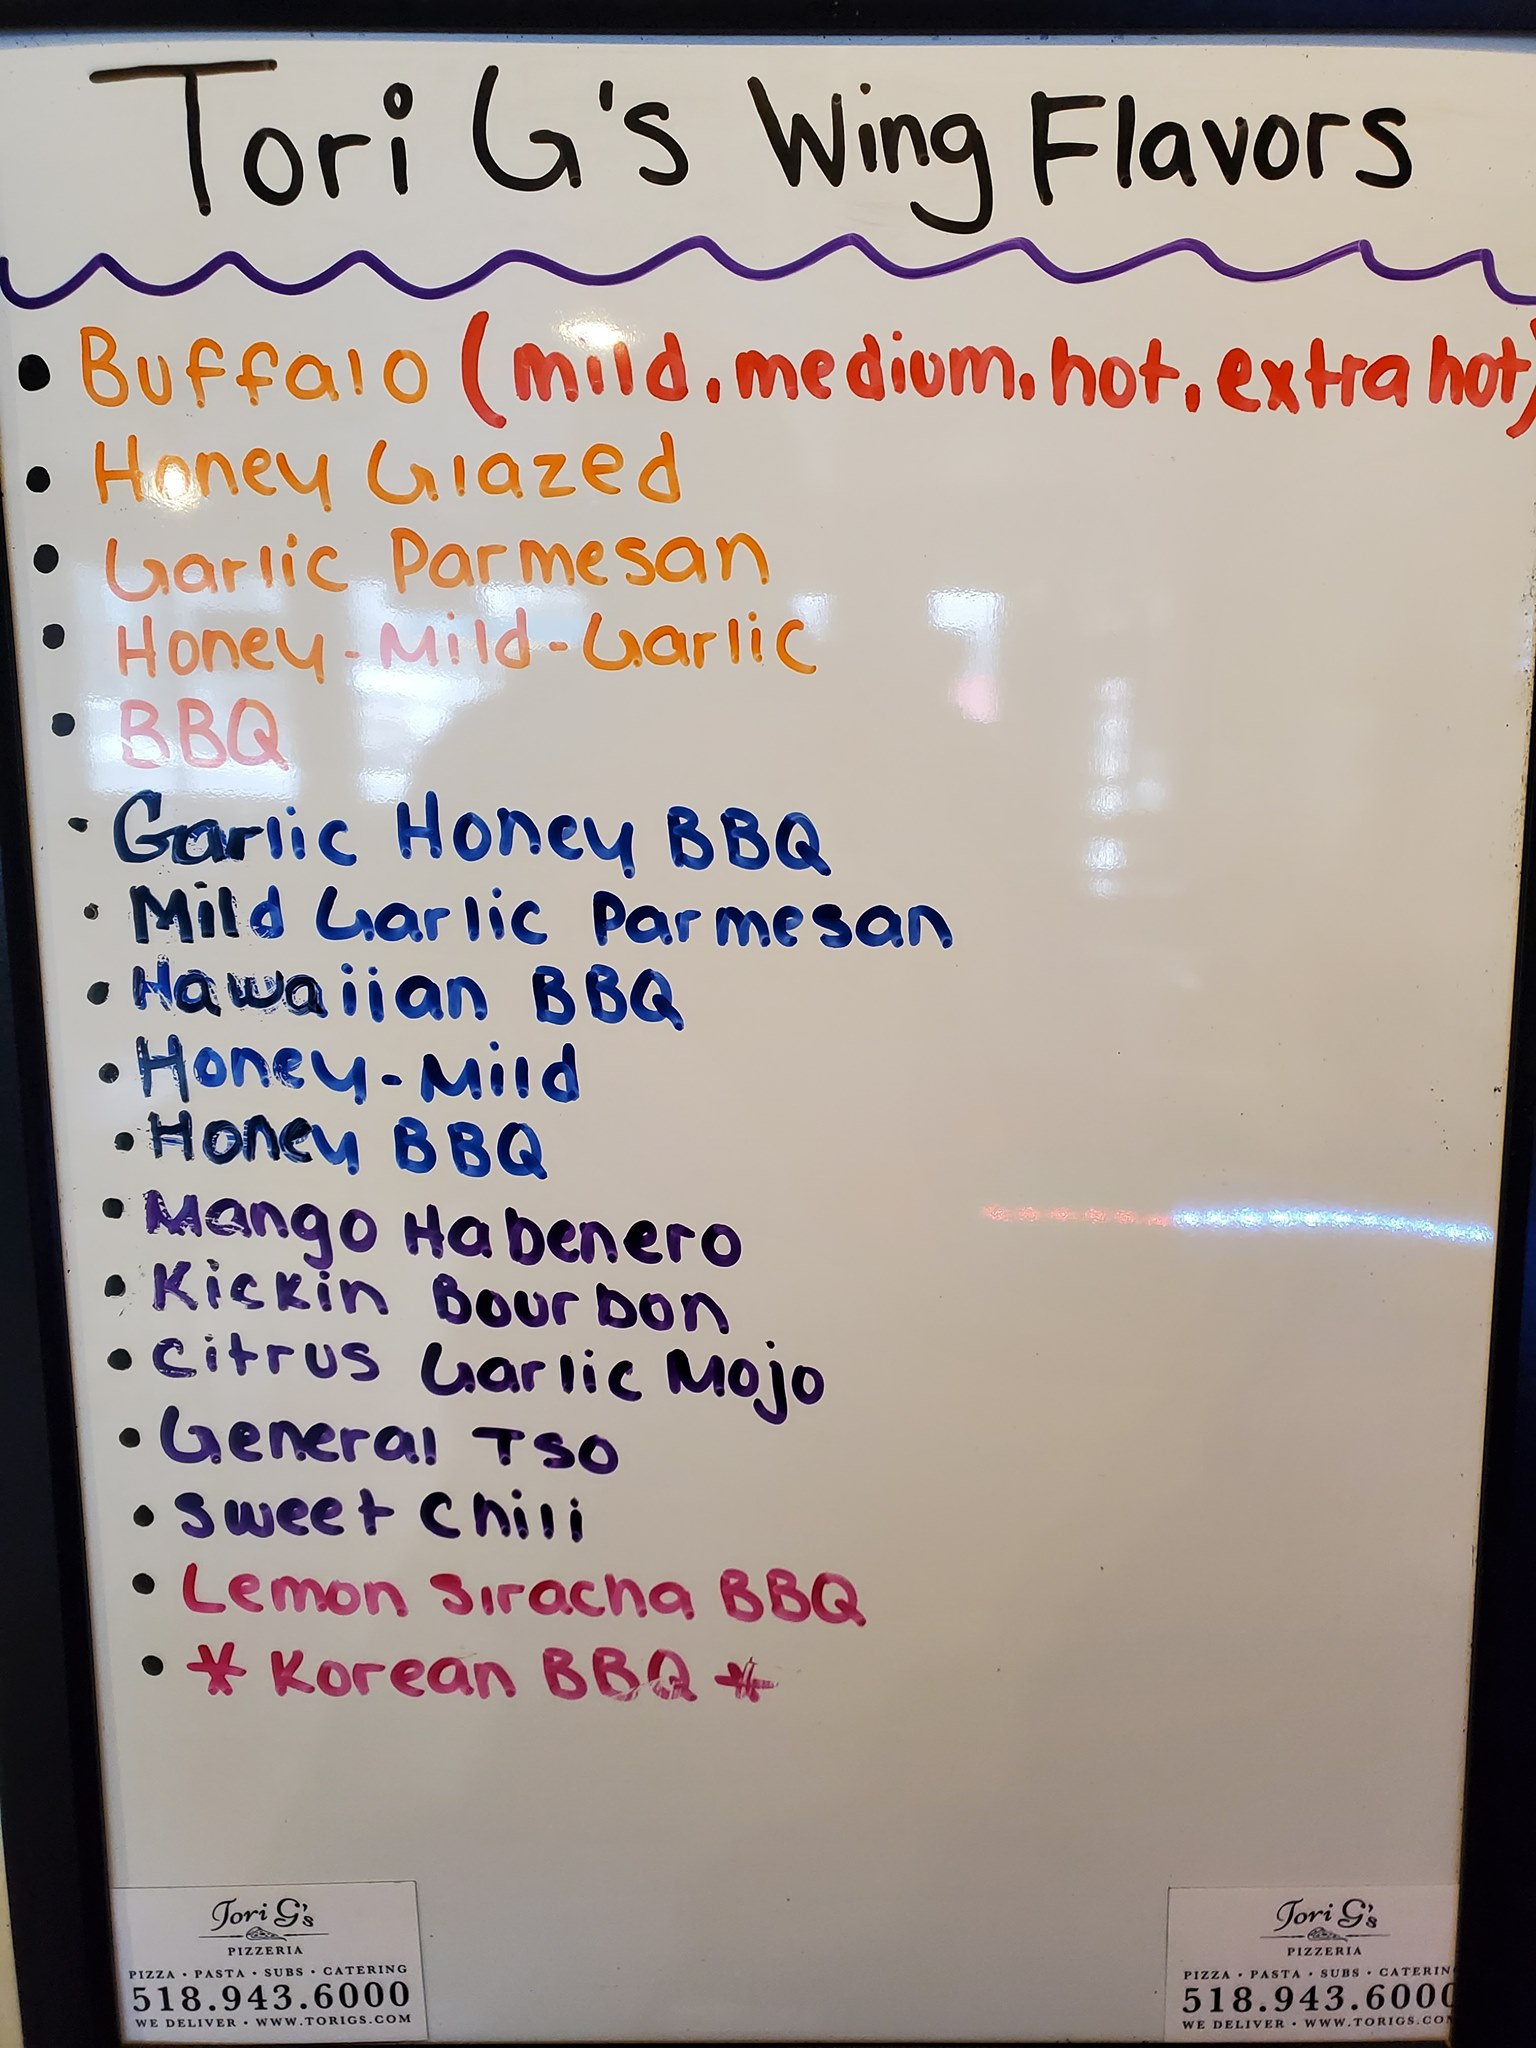 Tori G's Wing Flavors
• Buffalo (mild, medium, hot, extra hot)
• Honey Glazed
• Garlic Parmesan
• Honey-Mild-Garlic
• BBQ
• Garlic Honey BBQ
• Mild Garlic Parmesan
• Hawaiian BBQ
• Honey-Mild
• Honey BBQ
• Mango Habenero
• Kickin Bourbon
• Citrus Garlic Mojo
• General Tso
• Sweet Chili
• Lemon Siracha BBQ
• * Korean BBQ *
Tori G's
PIZZERIA
PIZZA • PASTA • SUBS • CATERING
518.943.6000
WE DELIVER • WWW.TORIGS.COM
Tori G's
PIZZERIA
PIZZA • PASTA • SUBS • CATERIN
518.943.6000
WE DELIVER • WWW.TORIGS.COM